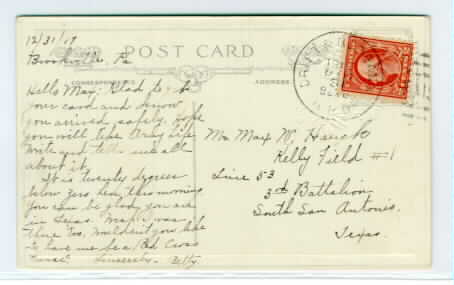 12/31/17
Brookville, Pa
POST CARD
CORRESPONDENCE
ADDRESS
Hello Max: Glad to get
your card and know
you arrived safely. Hope
you will like Army life
Write and tell me all
about it.
It is twenty degrees
below zero here this morning
you can be glad you are
in Texas. Wish I was
there too. Wouldn't you like
to have me be a Red Cross
nurse? Sincerely - Betty.
Mr Max W. Hauck
Kelly Field #1
Line 53
3rd Battalion
South San Antonio.
Texas.